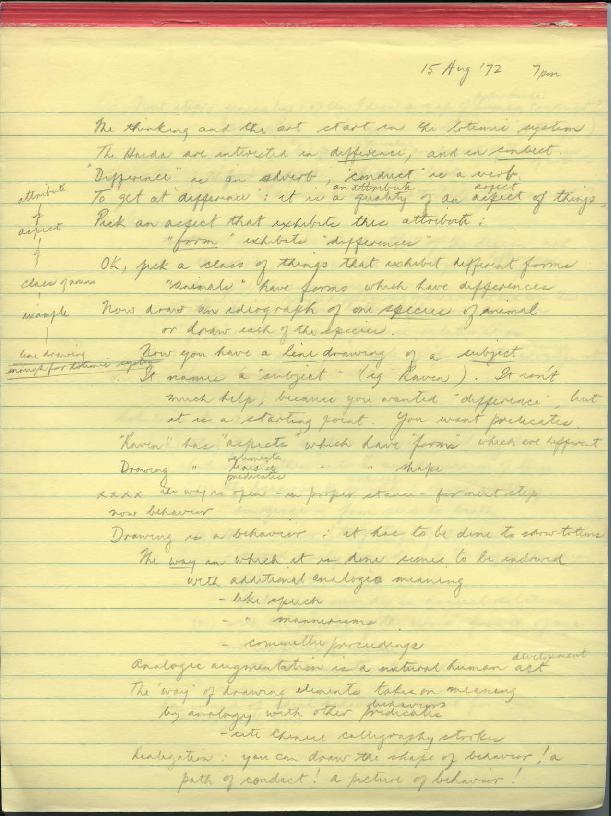 15 Aug '72 7pm
The thinking and the art start in the totemic system
The Haida are interested in difference, and in conduct
"Difference" is an adverb, "conduct" is a verb
To get at "difference": it is a quality of an aspect of things,
an attribute
aspect
Pick an aspect that exhibits this attribute:
"form" exhibits "differences"
OK, pick a class of things that exhibit different forms
"Animals" have forms which have differences
Now draw an ideograph of one species of animal
or draw each of the species.
Now you have a line drawing of a subject
It names a "subject" - (eg Raven). It isn't
much help, because you wanted "difference" but
it is a starting point. You want predicates.
"Raven" has "aspects" which have "forms" which are different
Drawing " elements " " shape
lines
predicates
xxxx the way is open - in proper stance - for next step
now behavior
Drawing is a behavior: it has to be done to show totems
The way in which it is done seems to be endowed
with additional analogic meaning
- like speech
- " mannerisms
- committee proceedings
Analogic augmentation is a natural human act
development
The 'way' of drawing elements takes on meaning
by analogy with other predicates
behaviors
- cite Chinese calligraphy strokes
Realization: you can draw the shape of behavior! a
path of conduct! a picture of behavior!
attribute
of
aspect
of
class of nouns
example
line drawing
enough for totemic system